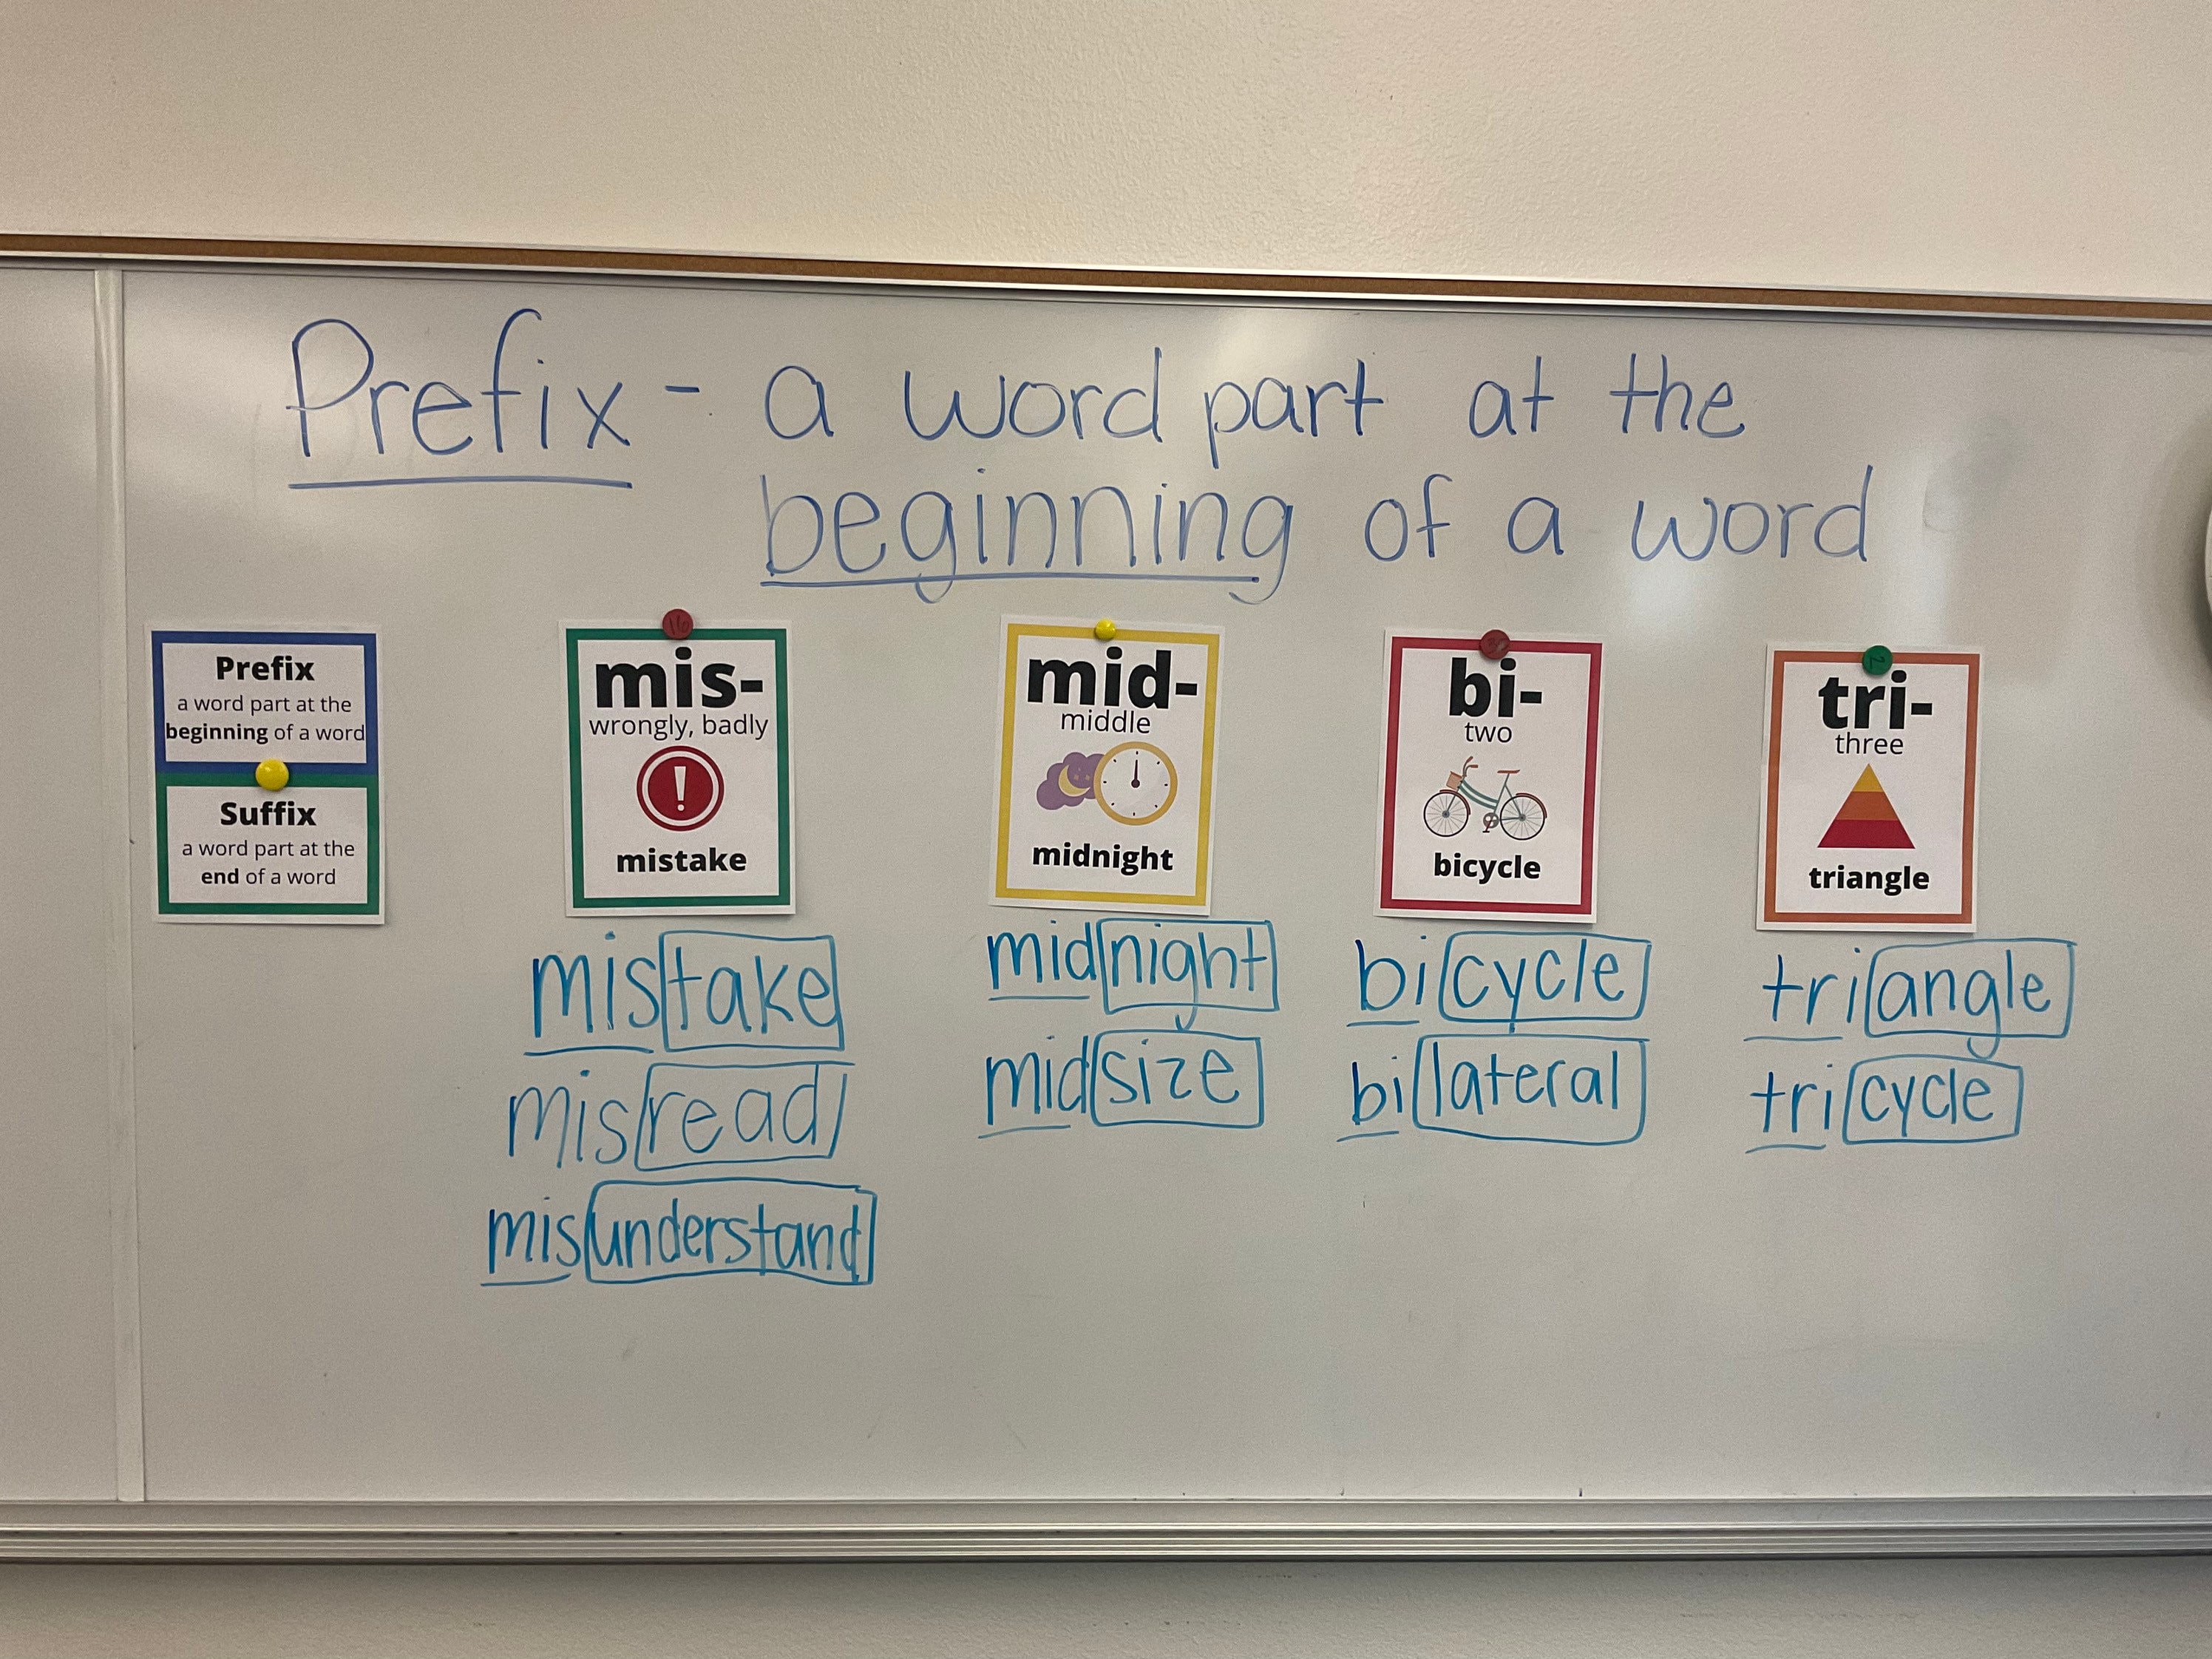 Prefix - a word part at the
beginning of a word
Prefix
a word part at the
beginning of a word
Suffix
a word part at the
end of a word
mis-
wrongly, badly
!
mistake
mistake
misread
misunderstand
mid-
middle
midnight
midnight
midsize
bi-
two
bicycle
bicycle
bilateral
tri-
three
triangle
triangle
tricycle
16
2